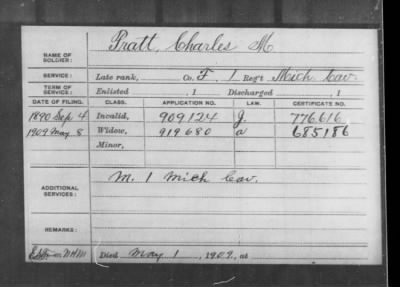 NAME OF SOLDIER: Pratt, Charles M
SERVICE: Late rank, Co. F, 1 Reg't Mich Cav.
TERM OF SERVICE: Enlisted , 1 Discharged , 1
DATE OF FILING. CLASS. APPLICATION NO. LAW. CERTIFICATE NO.
1890 Sep 4 Invalid, 909124 J. 776.616
1909 May 8 Widow, 919680 a 685186
Minor,
ADDITIONAL SERVICES: M. 1 Mich Cav.
REMARKS:
Died May 1, 1909, at